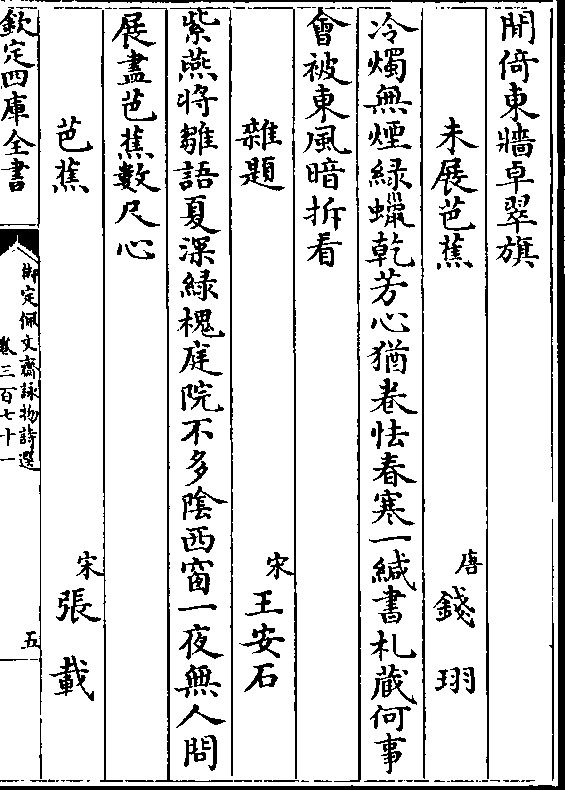 閒倚東牆卓翠旗
未展芭蕉 唐 錢珝
冷燭無煙綠蠟乾芳心猶卷怯春寒一緘書札藏何事
會被東風暗拆看
雜題 宋 王安石
紫燕將雛語夏深綠槐庭院不多陰西窗一夜無人問
展盡芭蕉數尺心
芭蕉 宋 張載
欽定四庫全書
御定佩文齋詠物詩選
卷三百七十一
五